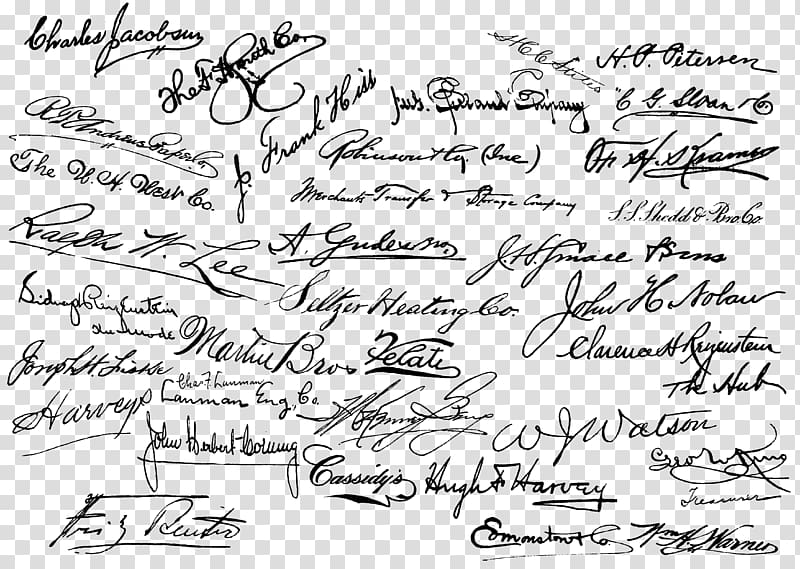 Charles Jacobsen
The F. H. Smith Co.
H. C. C. Stiles
H. P. Petersen
R. P. Andrews Paper Co.
J. Frank Hiss
Jul. Garland Company
C G. Sloan & Co
The W. H. West Co.
Robinson & Co. (Inc)
H. S. Kramer
Merchants Transfer & Storage Company
S. S. Shedd & Bro. Co.
Ralph W. Lee
A. Gudexson
J. H. Small & Sons
Sidney Reizenstein
Seltzer Heating Co.
John H Nolan
Martin Bros
Velati
Clarence H Reizenstein
Joseph H.
Chas. F. Lanman
Lanman Eng. Co.
The Hub
Harveys
W J Watson
John Herbert Corning
Cassidy's
Hugh F Harvey
Geo W King
Treasurer
Fritz Reuter
Edmonston & Co.
Wm H. Warner